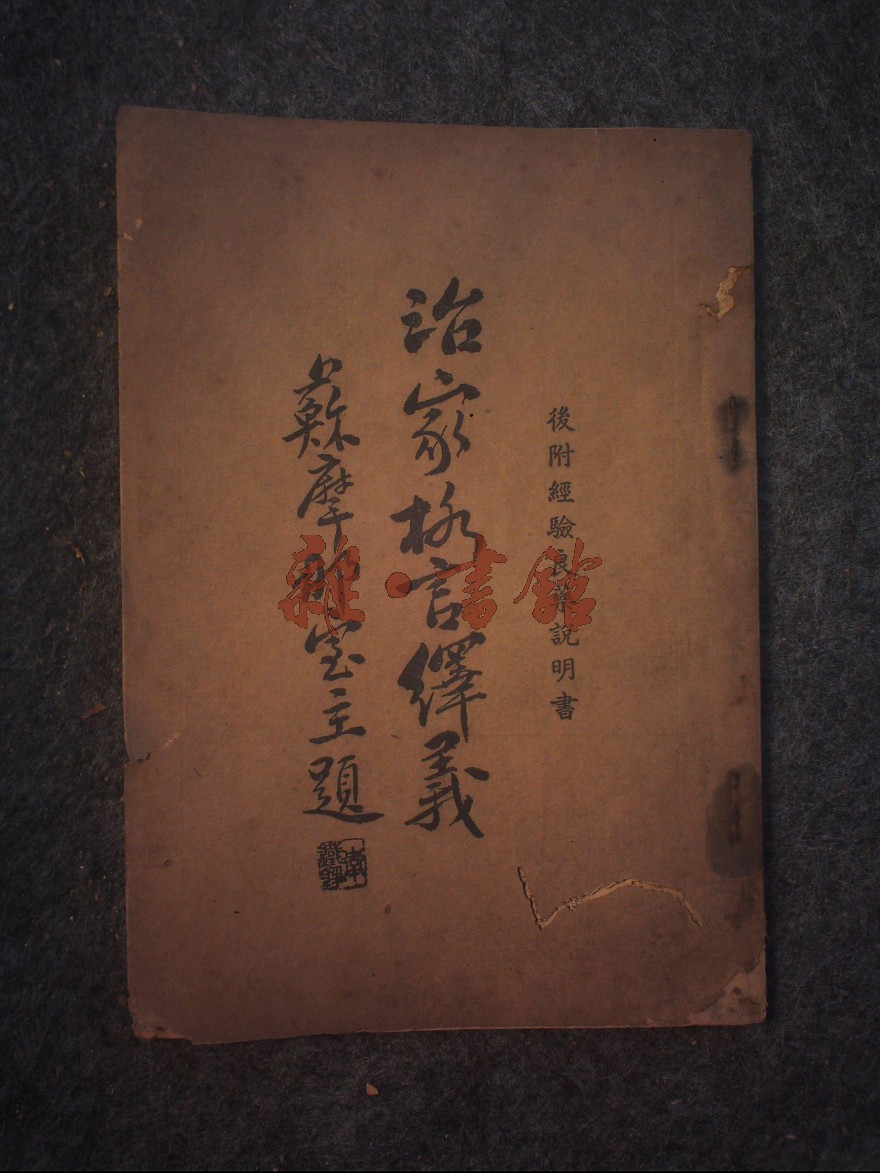 後附經驗良藥說明書
治家格言繹義
蘇摩那室主題
雜·書館